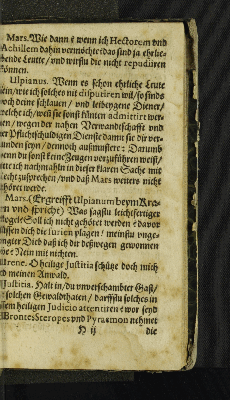 Mars. Wie dann / wenn ich Hectorem vnd
Achillem dahin vermöchte / das sind ja ehrlie-
bende Leute / vnd wirstu die nicht repudiiren
können.
Ulpianus. Wenn es schon ehrliche Leute
sein / wie ich solches nit disputiren wil / so sinds
noch deine schlauen / vnd leibeygene Diener /
welche ich / wen sie sonst künten admittirt wer-
en / wegen der nahen Verwandschafft vnd
er Pflichschuldigen Dienste damit sie dir ver-
unden seyn / dennoch ausmustere: Darumb
enn du sonst kein Zeugen vorzuführen weist /
itte ich nachmahln in dieser klaren Sache mit
echt zusprechen / vnd daß Mars weiters nicht
ehöret werde.
Mars. (Ergreifft Ulpianum beym Kra-
en vnd spricht) Was sagstu leichtfertiger
ogel: Soll ich nicht gehöret werden / davor
üssen dich die furien plagen / meinstu vnge-
ngter Dieb daß ich dir deßwegen gewonnen
be: Nein mit nichten.
Irene. O heilige Justitia schütze doch mich
d meinen Anwald.
Justitia. Halt in / du vnverschambter Gast /
solchen Gewaltthaten / darffstu solches in
em heiligen Judicio attentiren: wor seyd
Brontes Steropes vnd Pyracmon nehmet
H ij die